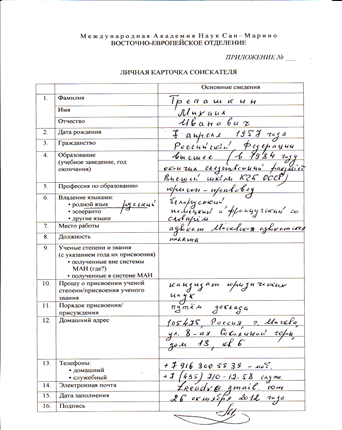 Международная Академия Наук Сан-Марино
ВОСТОЧНО-ЕВРОПЕЙСКОЕ ОТДЕЛЕНИЕ
ПРИЛОЖЕНИЕ № ___
ЛИЧНАЯ КАРТОЧКА СОИСКАТЕЛЯ
Основные сведения
1. Фамилия Трепашкин
Имя Михаил
Отчество Иванович
2. Дата рождения 7 апреля 1957 года
3. Гражданство Российской Федерации
4. Образование высшее (в 1984 году
(учебное заведение, год окончил следственный факультет
окончания) Высшей школы КГБ СССР)
5. Профессия по образованию юрист-правовед
6. Владение языками:
• родной язык русский белорусский
• эсперанто немецкий и французский со
• другие языки словарём
7. Место работы адвокат Московская адвокатская
8. Должность палата
9. Ученые степени и звания
(с указанием года их присвоения)
• полученные вне системы
МАН (где?)
• полученные в системе МАН
10. Прошу о присвоении ученой кандидат юридических
степени/присвоения ученого наук
звания
11. Порядок присвоения/ путём доклада
присуждения
12. Домашний адрес 105475, Россия, г. Москва,
ул. 8-ая Соколиной горы,
дом 18, кв 6
13. Телефоны:
• домашний +7 916 300 55 38 - моб.
• служебный +7 (495) 710-12-58 служ.
14. Электронная почта gmail com
15. Дата заполнения 26 октября 2012 года
16. Подпись